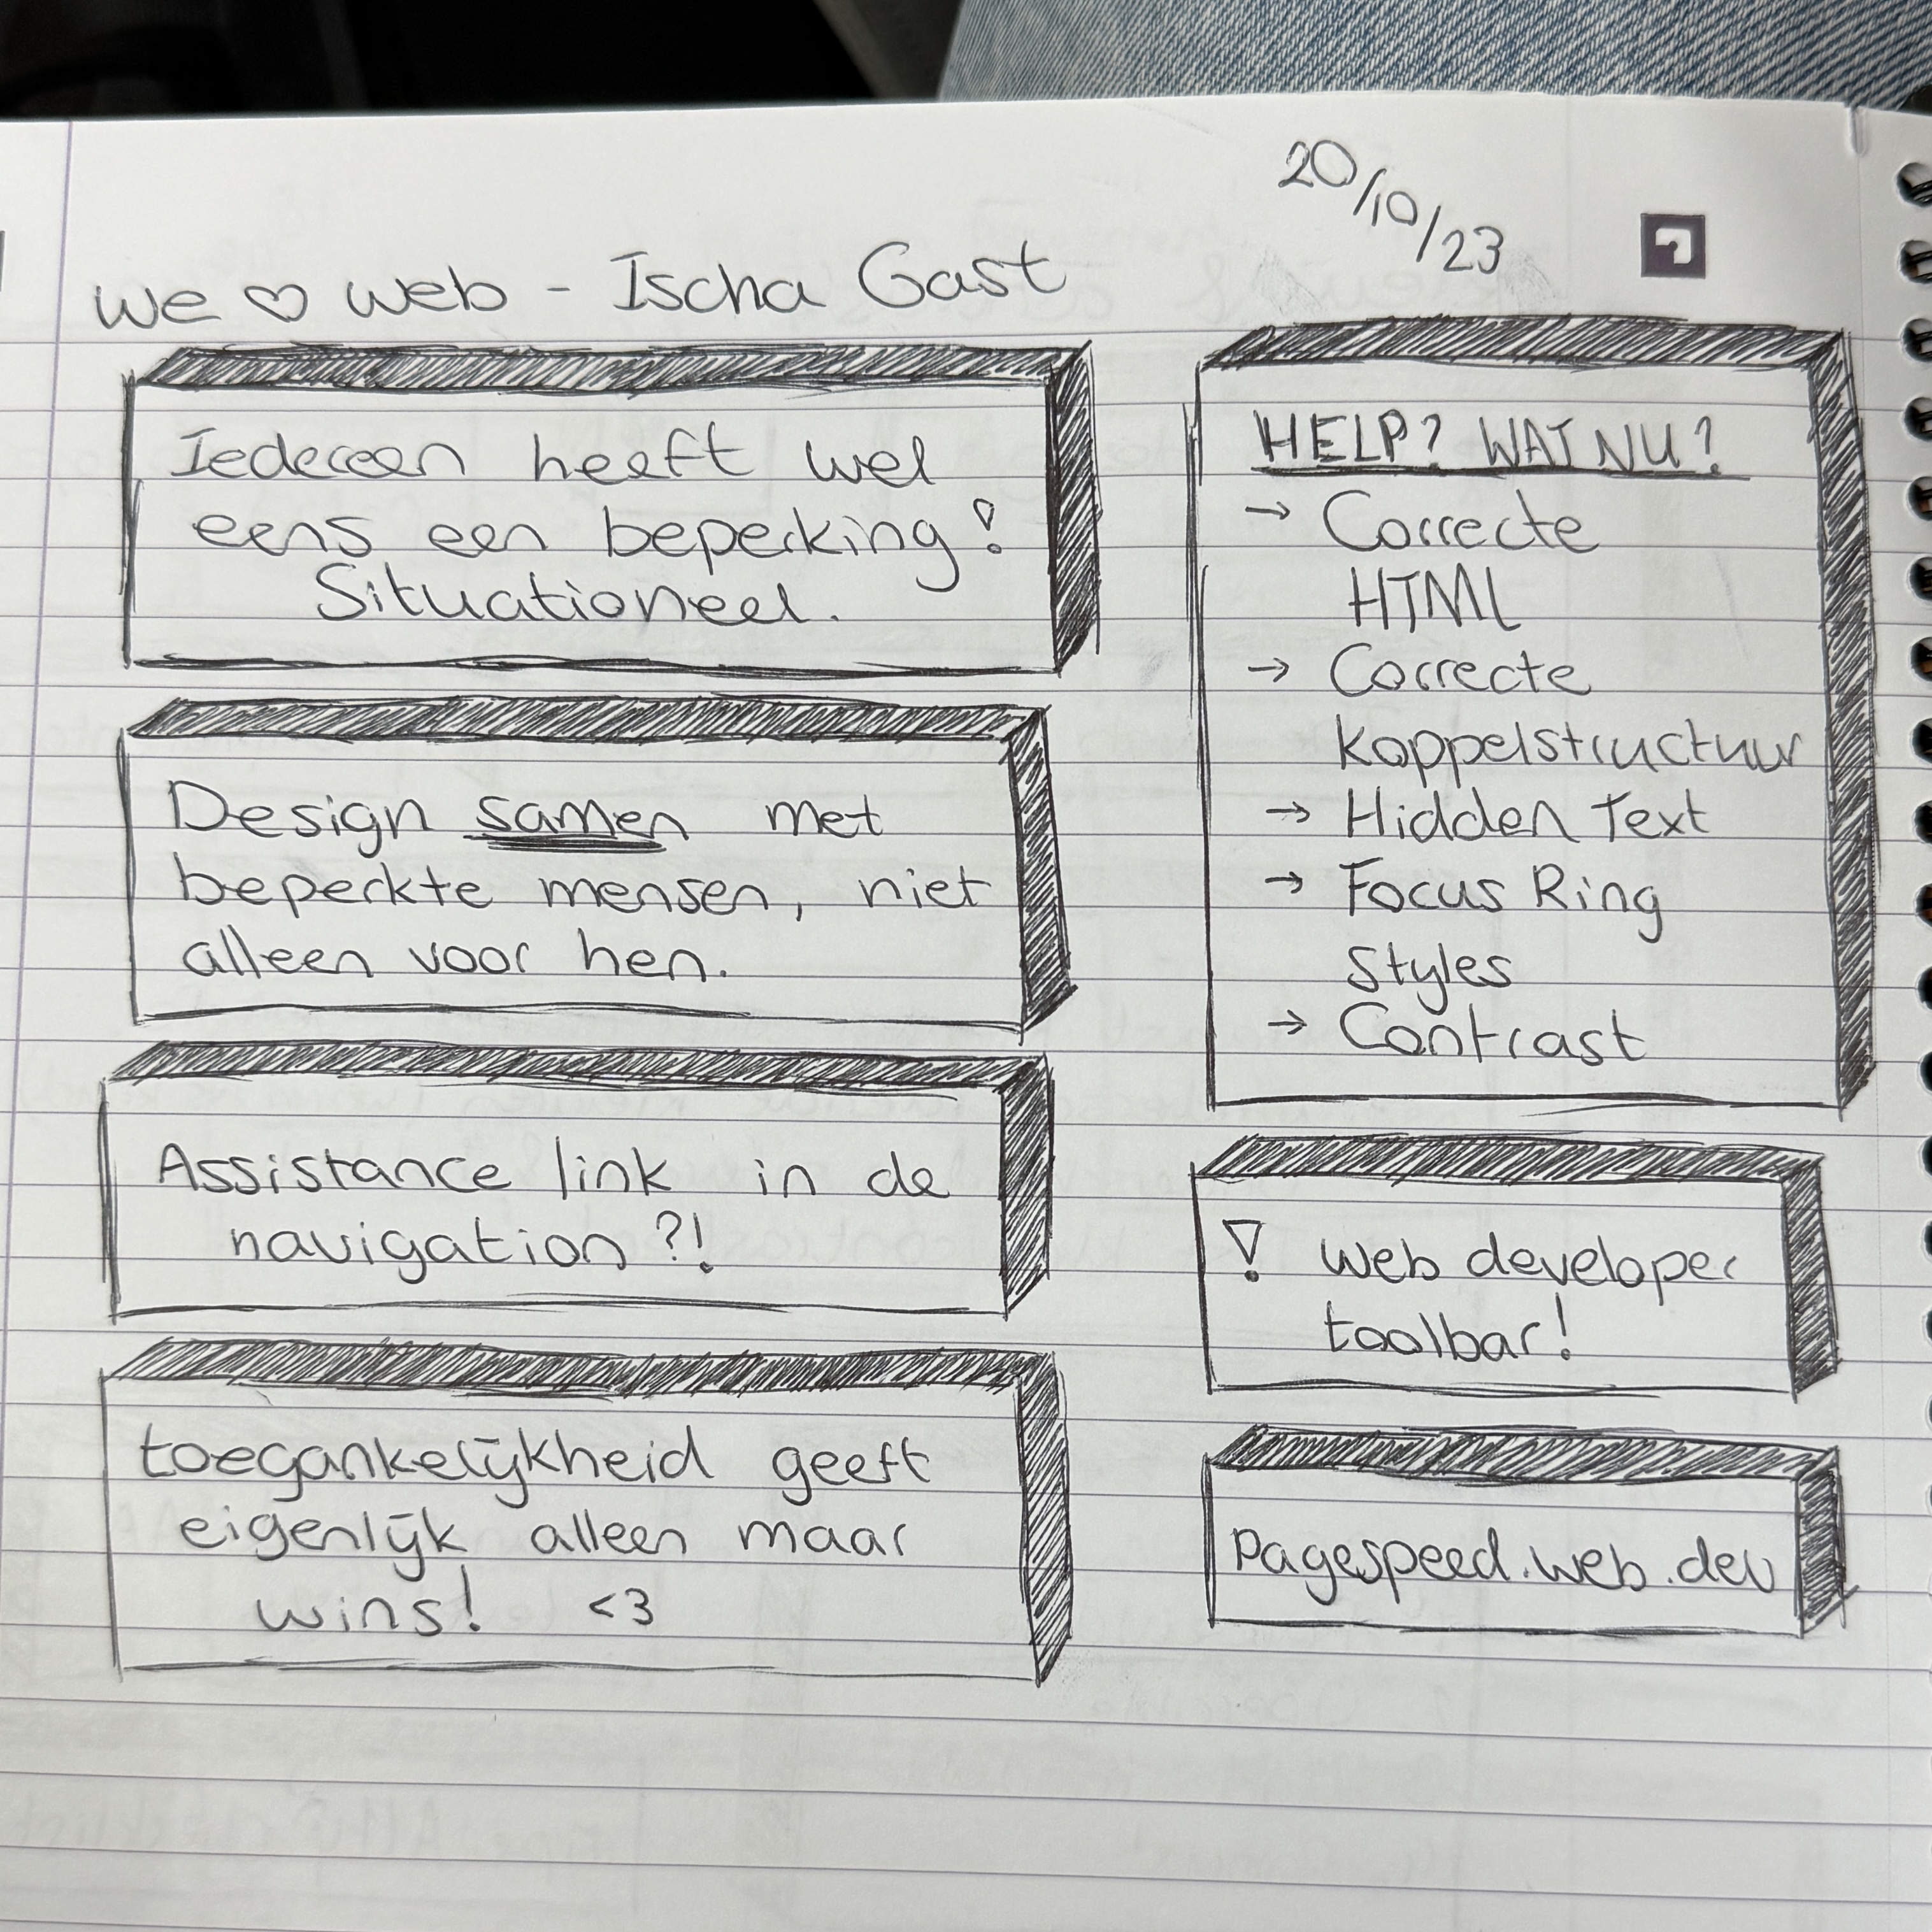 20/10/23
we ♡ web - Ischa Gast
Iedereen heeft wel
eens een beperking!
Situationeel.
Design samen met
beperkte mensen, niet
alleen voor hen.
Assistance link in de
navigation?!
toegankelijkheid geeft
eigenlijk alleen maar
wins! <3
HELP? WAT NU?
→ Correcte
HTML
→ Correcte
Koppelstructuur
→ Hidden Text
→ Focus Ring
Styles
→ Contrast
! web developer
toolbar!
Pagespeed.web.dev